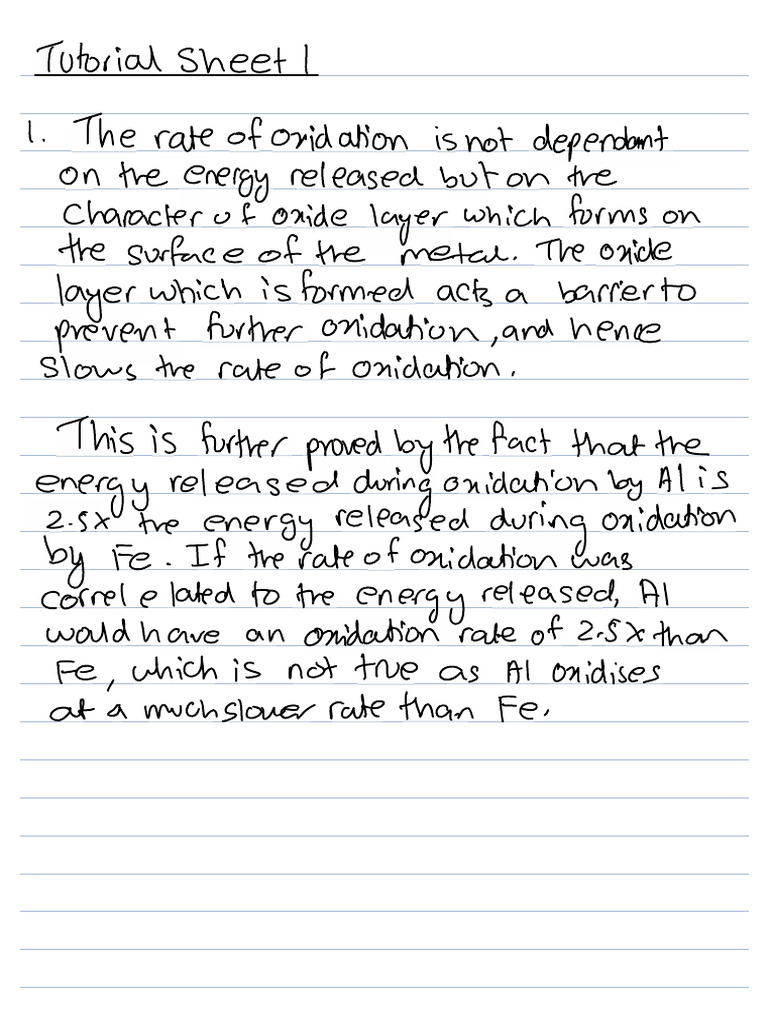 Tutorial Sheet 1
1. The rate of oxidation is not dependant
on the energy released but on the
Character of oxide layer which forms on
the surface of the metal. The oxide
layer which is formed acts a barrier to
prevent further oxidation, and hence
slows the rate of oxidation.
This is further proved by the fact that the
energy released during oxidation by Al is
2.5x the energy released during oxidation
by Fe. If the rate of oxidation was
correl e lated to the energy released, Al
would have an oxidation rate of 2.5x than
Fe, which is not true as Al oxidises
at a much slower rate than Fe.